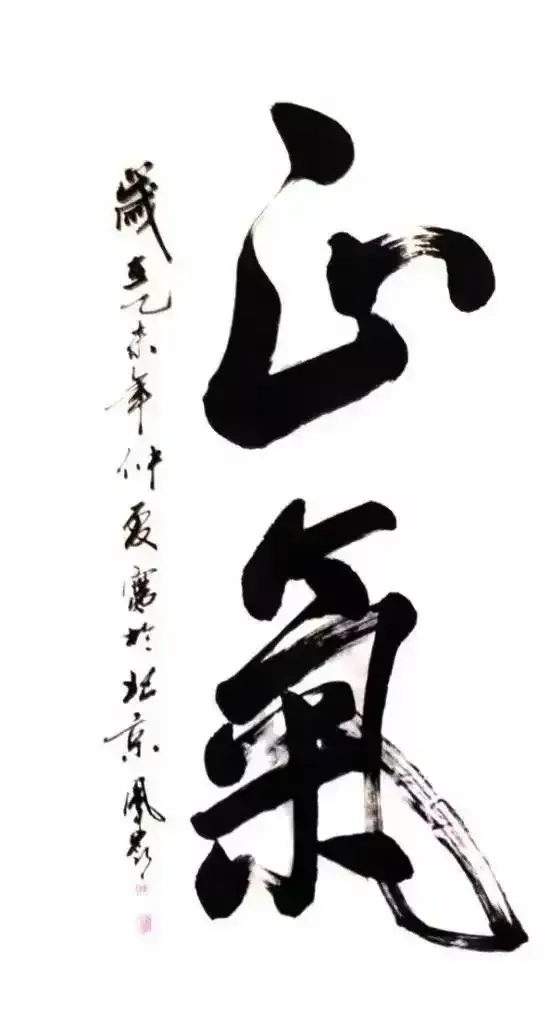 正氣
歲在乙未年仲夏寫於北京鳳